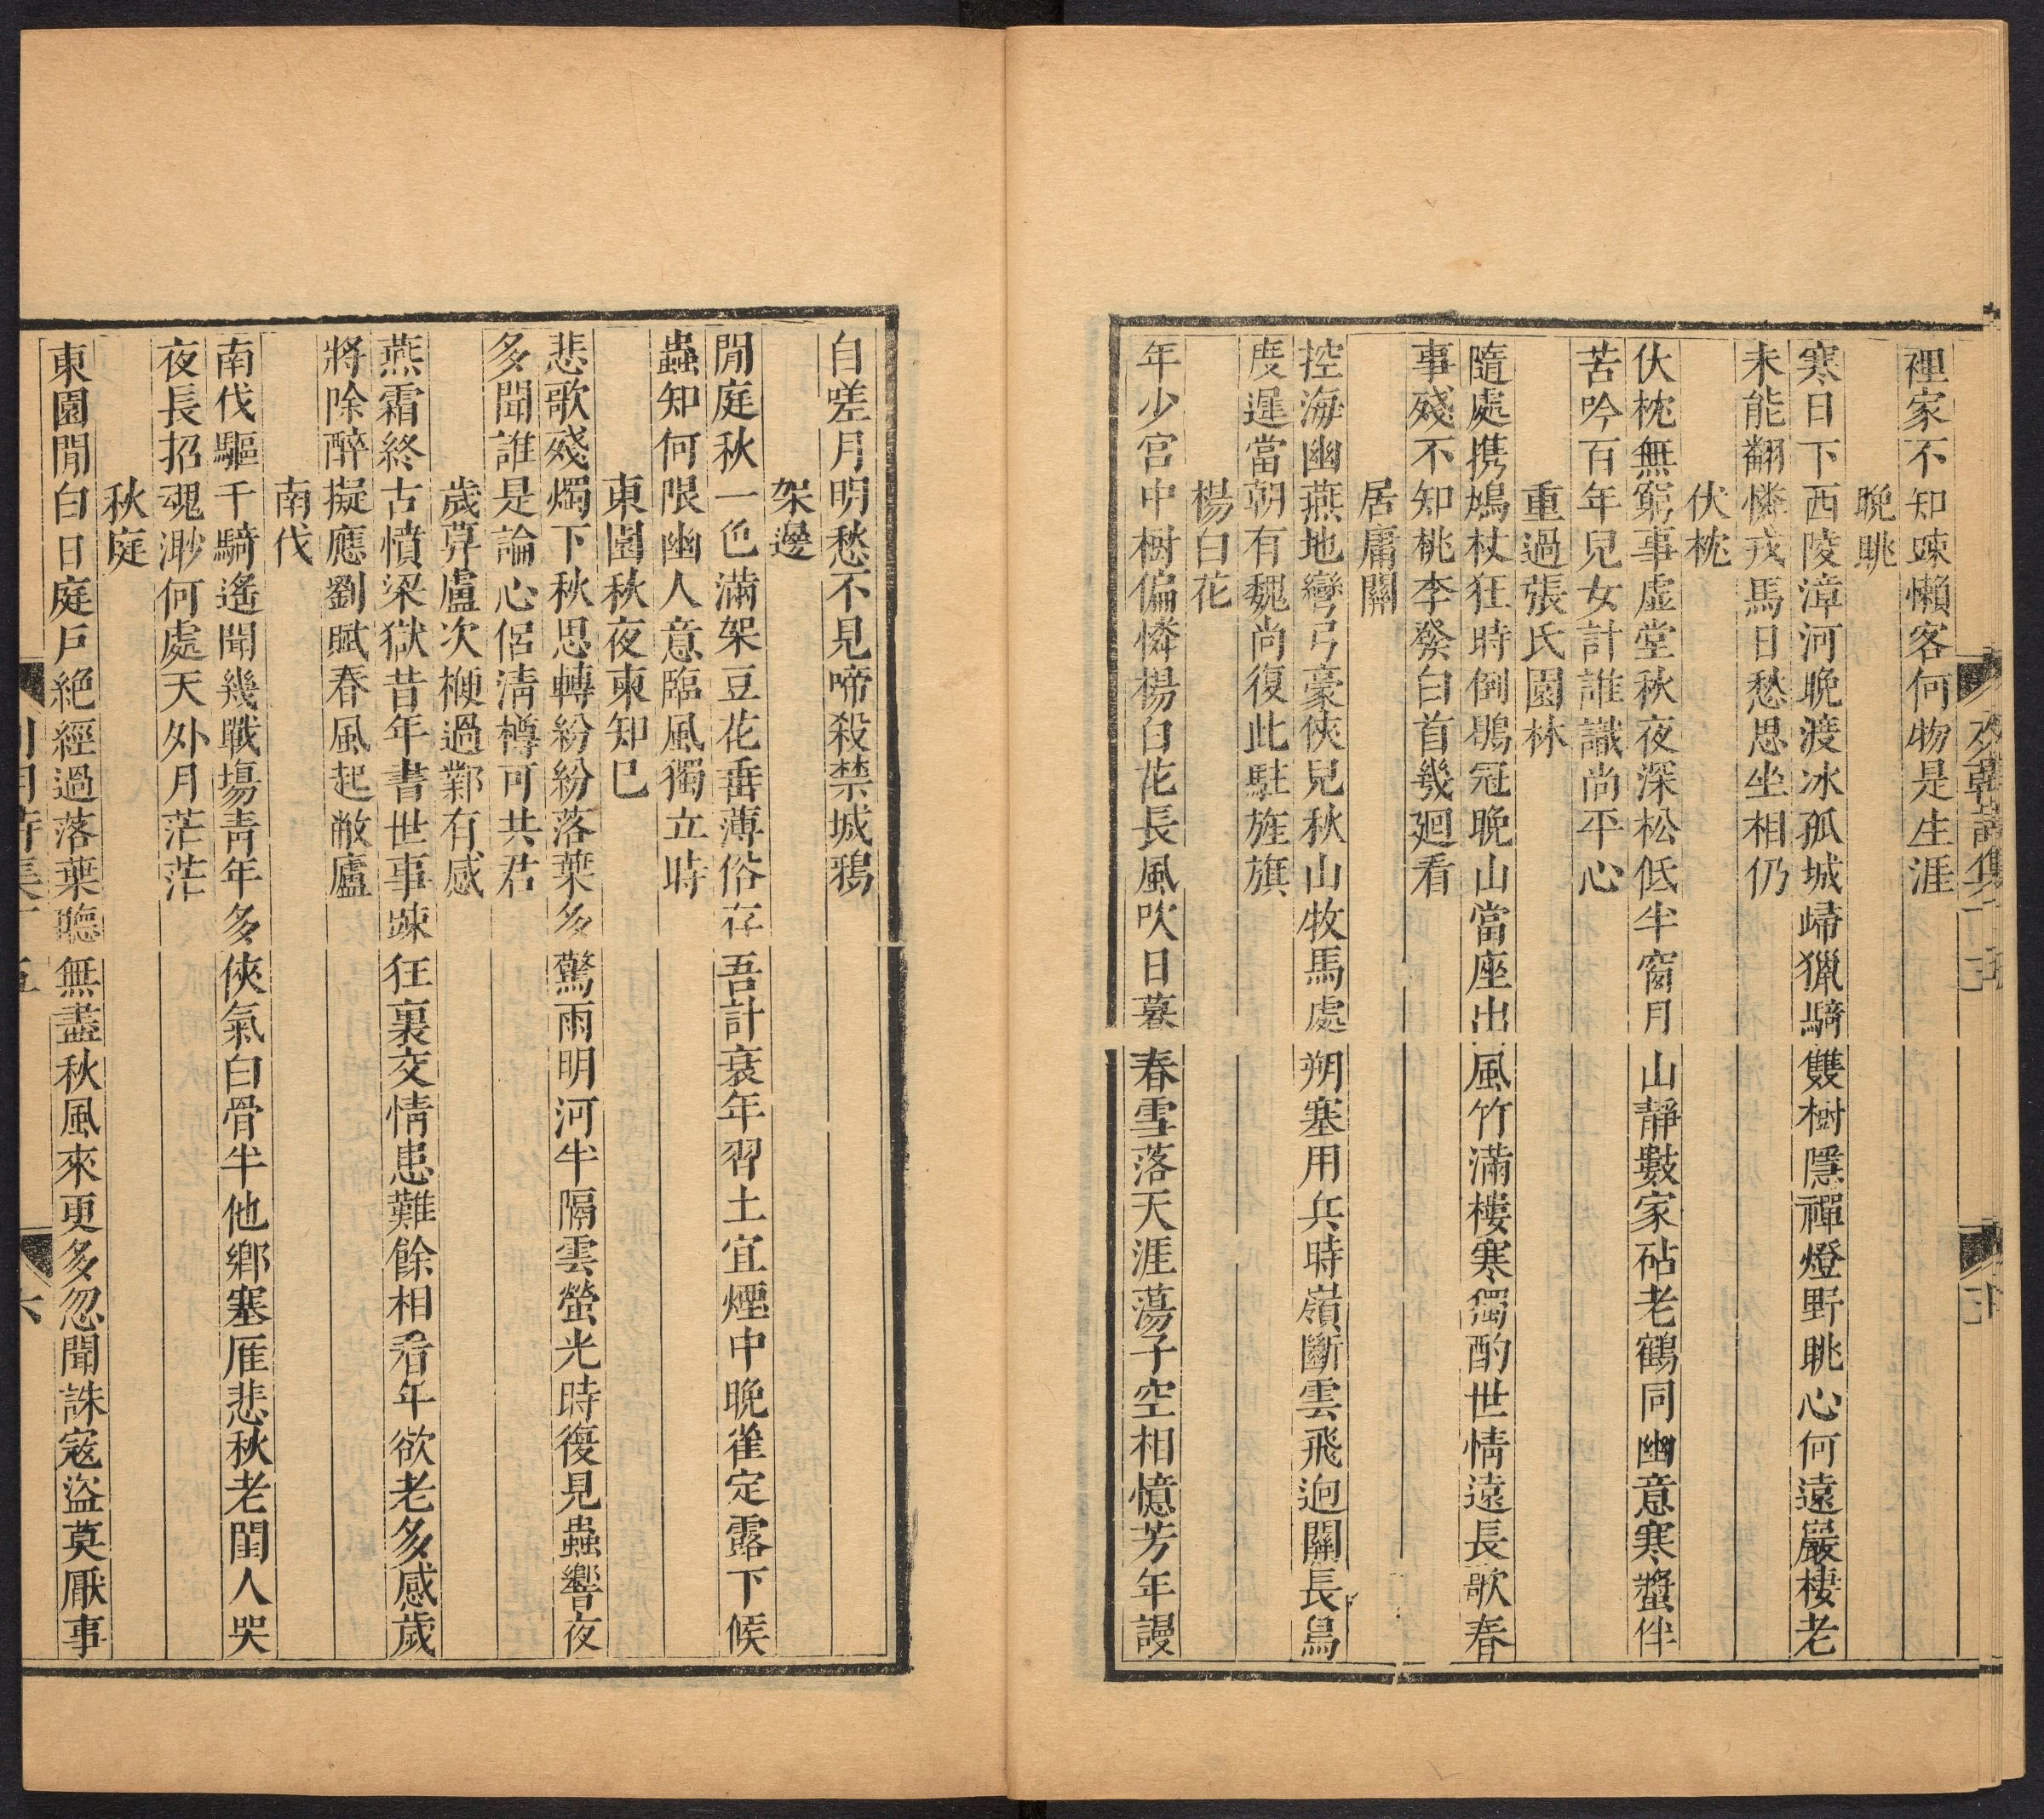 裡家不知踈懶客何物是生涯
晚眺
寒日下西陵漳河晚渡冰孤城歸獵騎雙樹隱禪燈野眺心何遠巖棲老
未能翻憐戎馬日愁思坐相仍
伏枕
伏枕無窮事虛堂秋夜深松低半窗月山靜數家砧老鶴同幽意寒螿伴
苦吟百年兒女計誰識尚平心
重過張氏園林
隨處携鳩杖狂時倒鶡冠晚山當座出風竹滿樓寒獨酌世情遠長歌春
事殘不知桃李發白首幾廻看
居庸關
控海幽燕地彎弓豪俠兒秋山牧馬處朔塞用兵時嶺斷雲飛逈關長鳥
度遲當朝有魏尚復此駐旌旗
楊白花
年少宮中樹偏憐楊白花長風吹日暮春雪落天涯蕩子空相憶芳年謾
自嗟月明愁不見啼殺禁城鴉
架邊
閒庭秋一色滿架豆花垂薄俗存吾計衰年習土宜煙中晚雀定露下候
蟲知何限幽人意臨風獨立時
東園秋夜柬知己
悲歌殘燭下秋思轉紛紛落葉多驚雨明河半隔雲螢光時復見蟲響夜
多聞誰是論心侶清樽可共君
歲莫盧次楩過鄴有感
燕霜終古憤梁獄昔年書世事踈狂裏交情患難餘相看年欲老多感歲
將除醉擬應劉賦春風起敝廬
南伐
南伐驅千騎遙聞幾戰塲青年多俠氣白骨半他鄉塞雁悲秋老閨人哭
夜長招魂渺何處天外月茫茫
秋庭
東園閒白日庭戶絕經過落葉聽無盡秋風來更多忽聞誅寇盜莫厭事
六